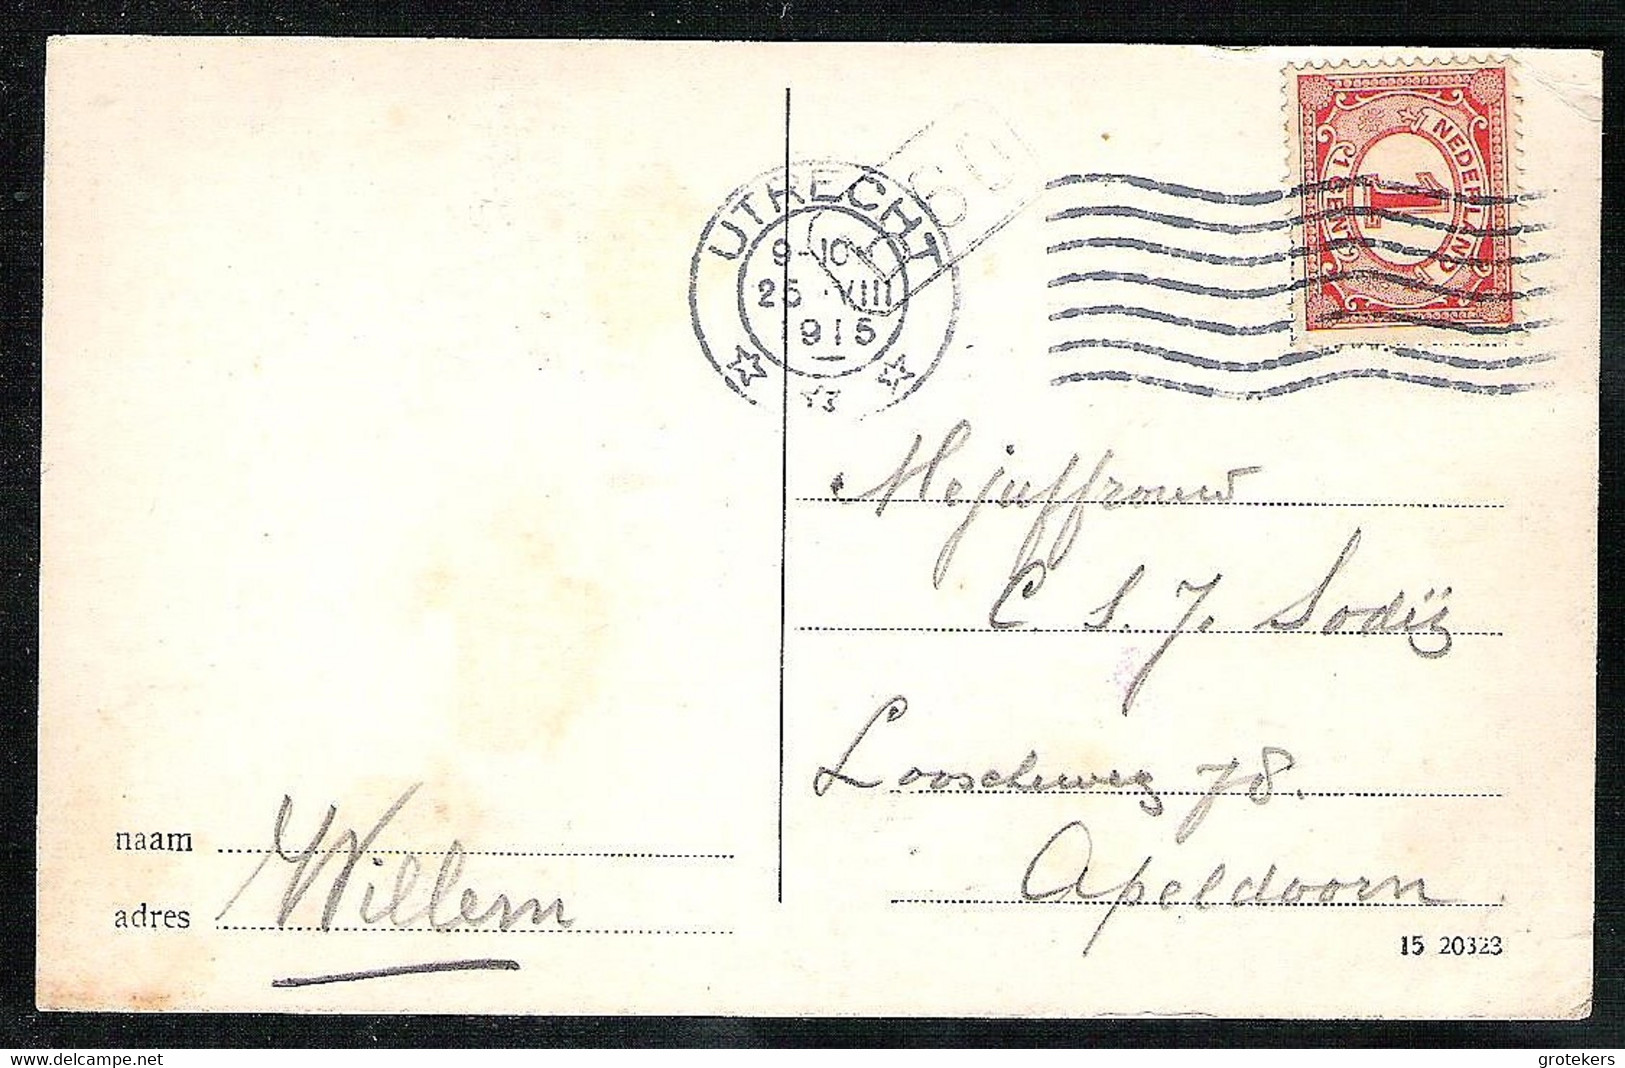 60
UTRECHT
9-10
25 VIII
1915
NEDERLAND
1
1 CENT
Mejuffrouw
C. S. J. Sodij
Looscheweg 78.
Apeldoorn
naam
adres
Willem
15 20323
delcampe.net
grotekers